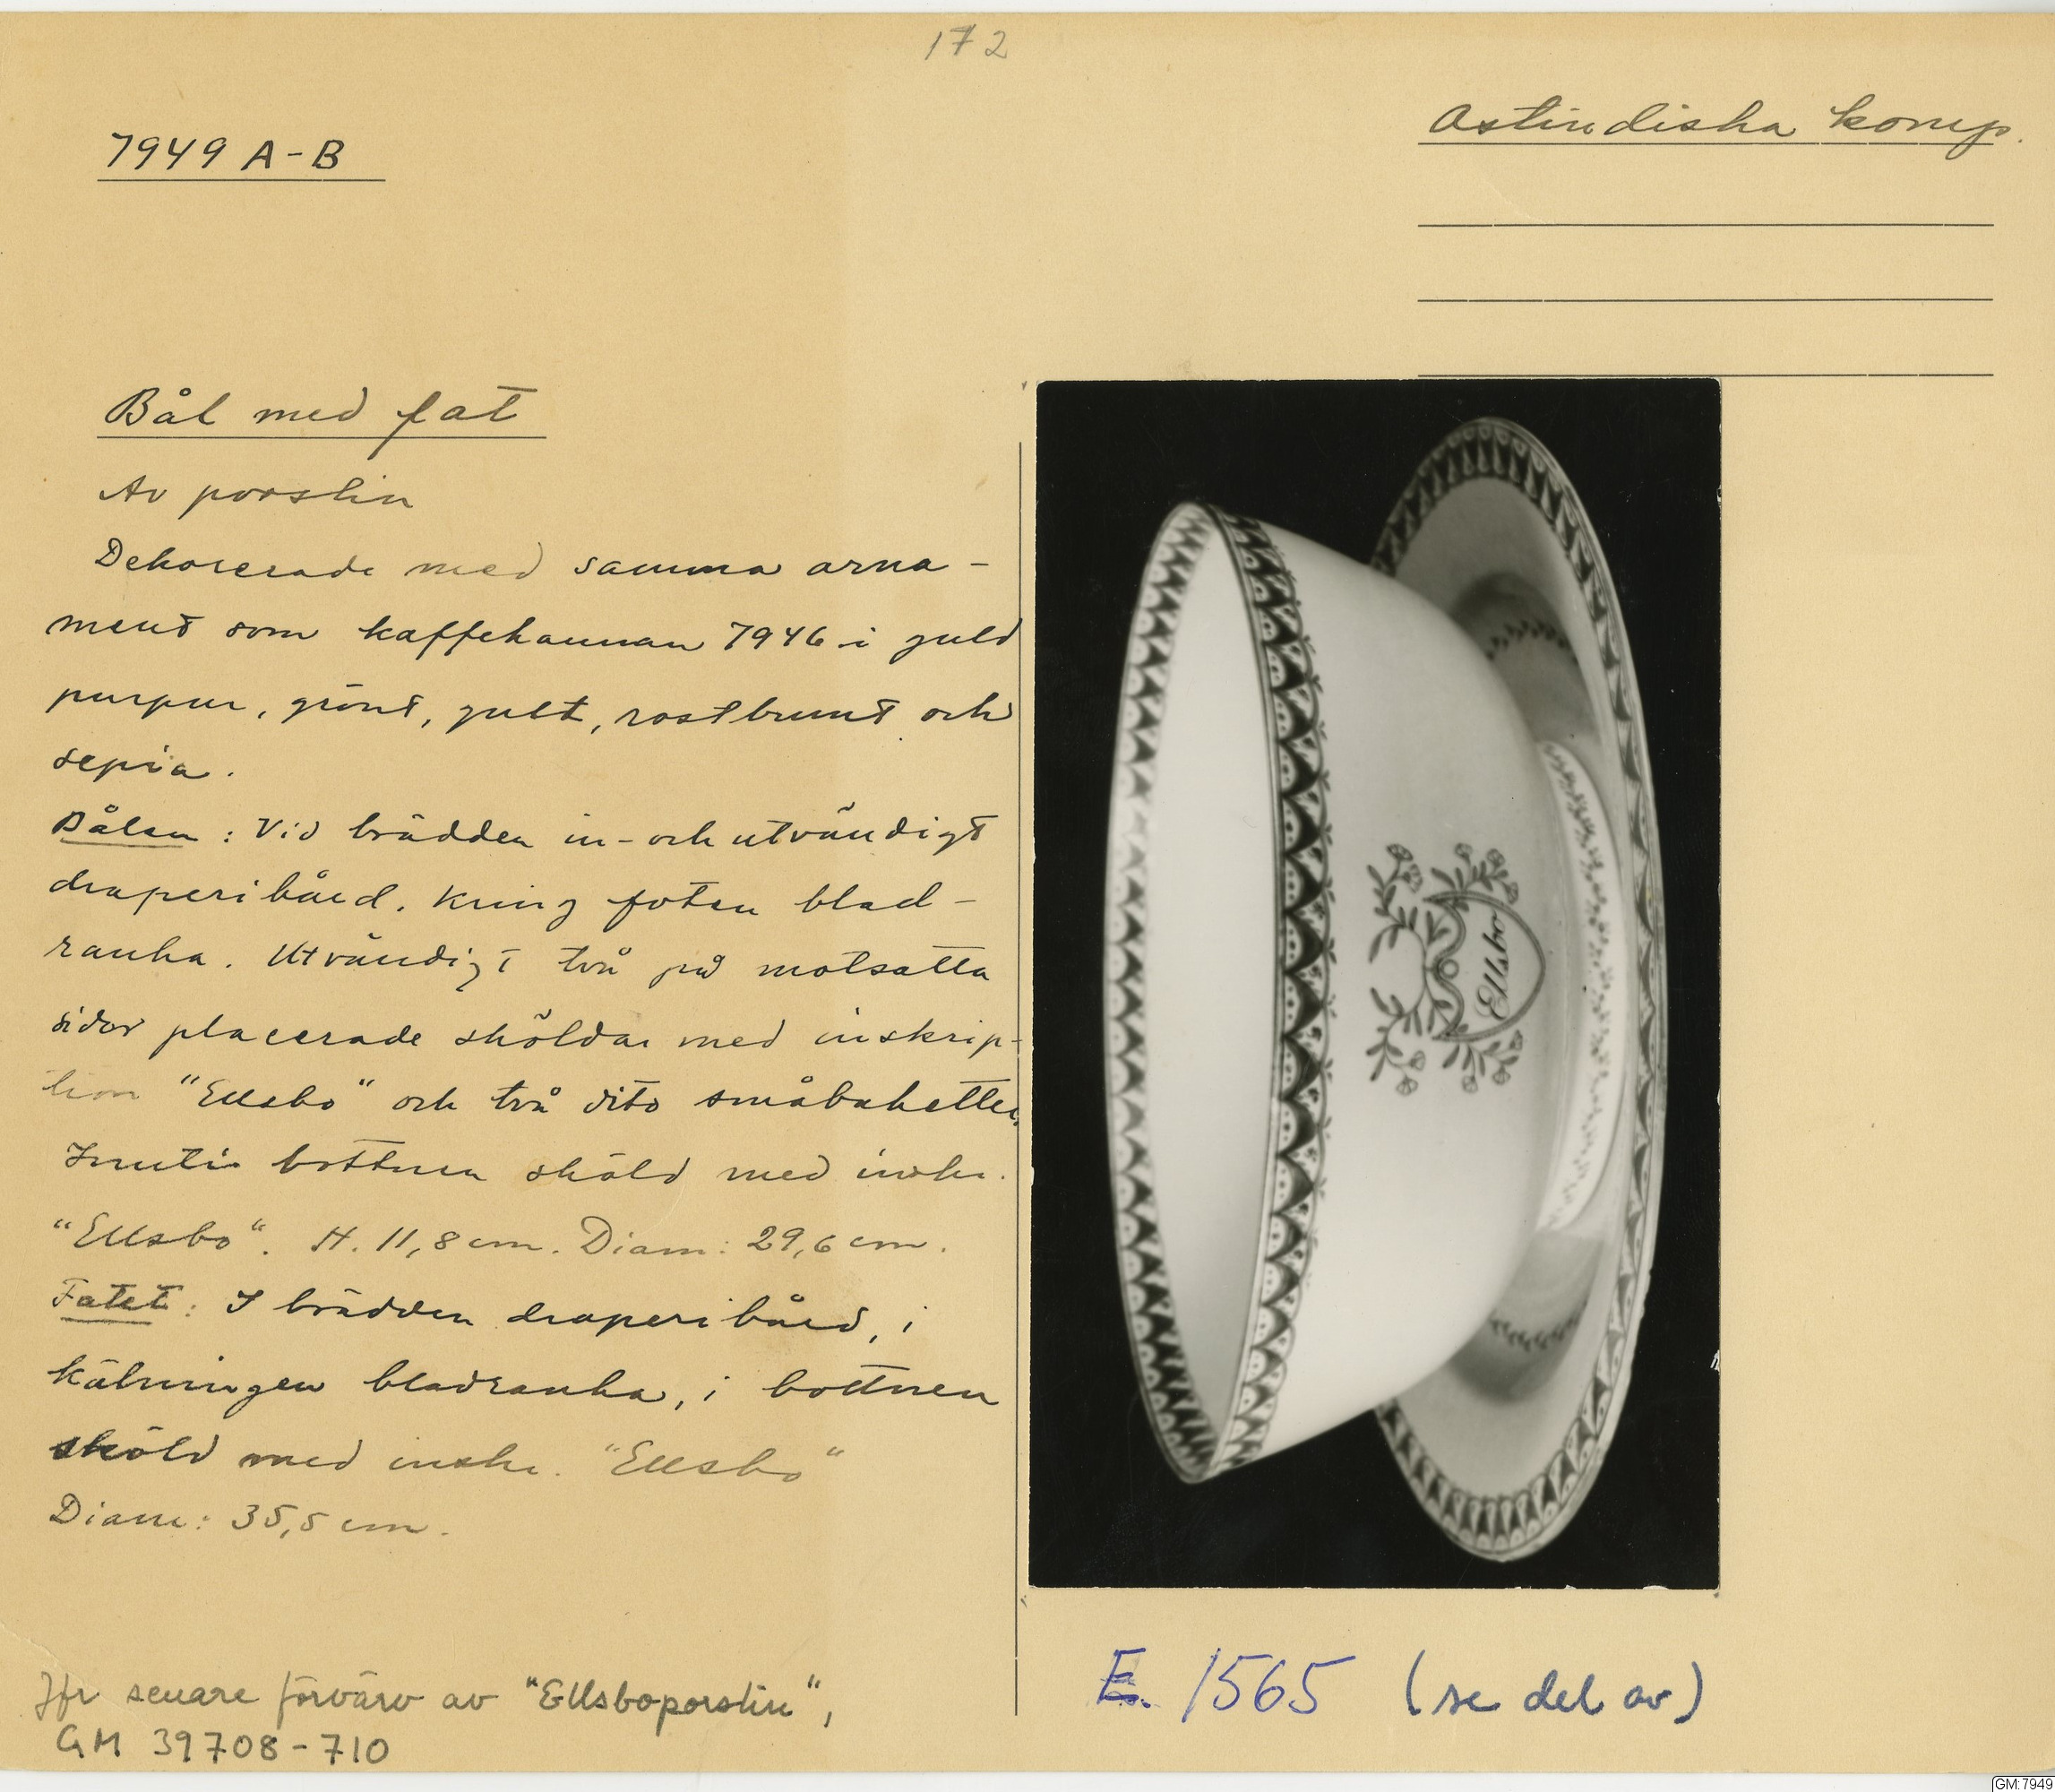 172
7949 A-B
Ostindiska komp.
Bål med fat
Av porslin
Dekorerade med samma orna-
ment som kaffekannan 7946 i guld
purpur, grönt, gult, rostbrunt och
sepia.
Bålen: Vid brädden in- och utvändigt
draperibård. Kring foten blad-
ranka. Utvändigt två på motsatta
sidor placerade sköldar med inskrip-
tion "Ellsbo" och två dito småbuketter.
Inuti i bottnen sköld med inskr.
"Ellsbo". H. 11,8 cm. Diam: 29,6 cm.
Fatet: I brädden draperibård, i
kälningen bladranka, i bottnen
sköld med inskr. "Ellsbo"
Diam: 35,5 cm.
Jfr senare förvärv av "Ellsboporslin",
GM 39708-710
Ellsbo
E. 1565 (se del av)
GM:7949